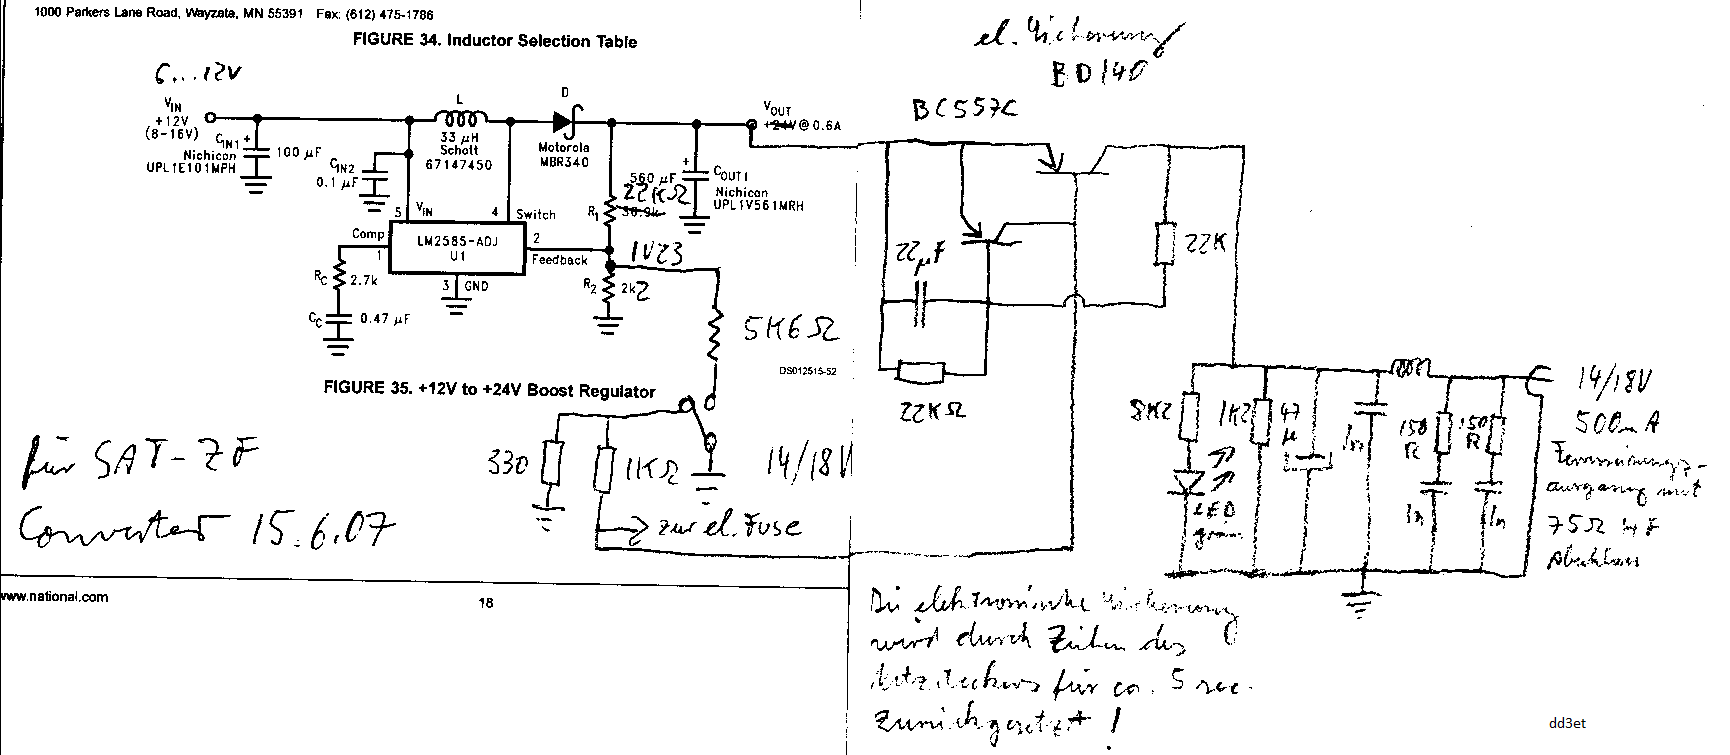 1000 Parkers Lane Road, Wayzata, MN 55391 Fax: (612) 475-1786
FIGURE 34. Inductor Selection Table
6...12V
VIN
+12V
(8-16V)
CIN1 +
Nichicon
UPL1E101MPH
100 µF
CIN2
0.1 µF
L
33 µH
Schott
67147450
D
Motorola
MBR340
VOUT
+24V @ 0.6A
560 µF
+
COUT1
Nichicon
UPL1V561MRH
22KΩ
R1 36.9k
5 VIN
4 Switch
Comp
1
LM2585-ADJ
U1
2
Feedback
3 GND
1V23
RC 2.7k
CC 0.47 µF
R2 2k2
5K6Ω
DS012515-52
FIGURE 35. +12V to +24V Boost Regulator
330
1KΩ
14/18V
zur el. Fuse
für SAT-ZF
Converter 15.6.07
www.national.com
18
el. Sicherung
BD140
BC557C
22µF
22K
22KΩ
8K2
1K2
47
µ
1n
150
R
150
R
LED
grün
1n
1n
14/18V
500mA
Fernspeisungs-
ausgang mit
75Ω HF
Abschluss
Die elektronische Sicherung
wird durch Ziehen des
Netzsteckers für ca. 5 sec.
zurückgesetzt!
dd3et